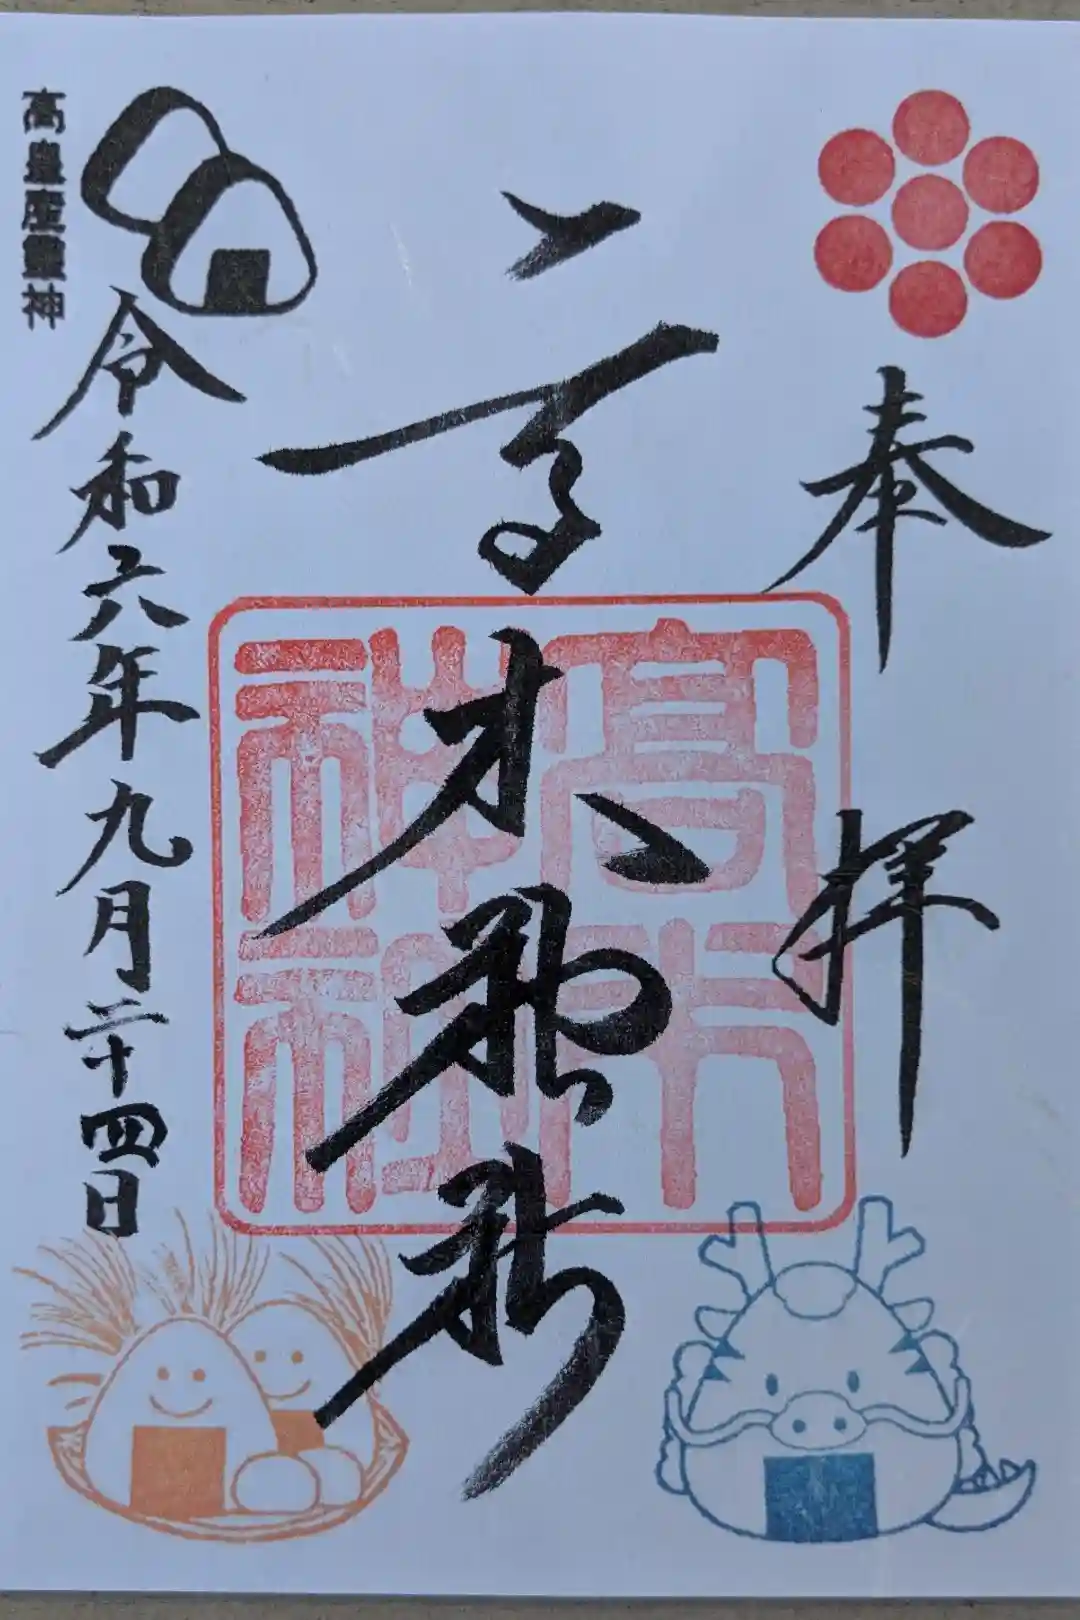 奉拝
高木神社
高木神社
令和六年九月二十四日
高皇産靈神